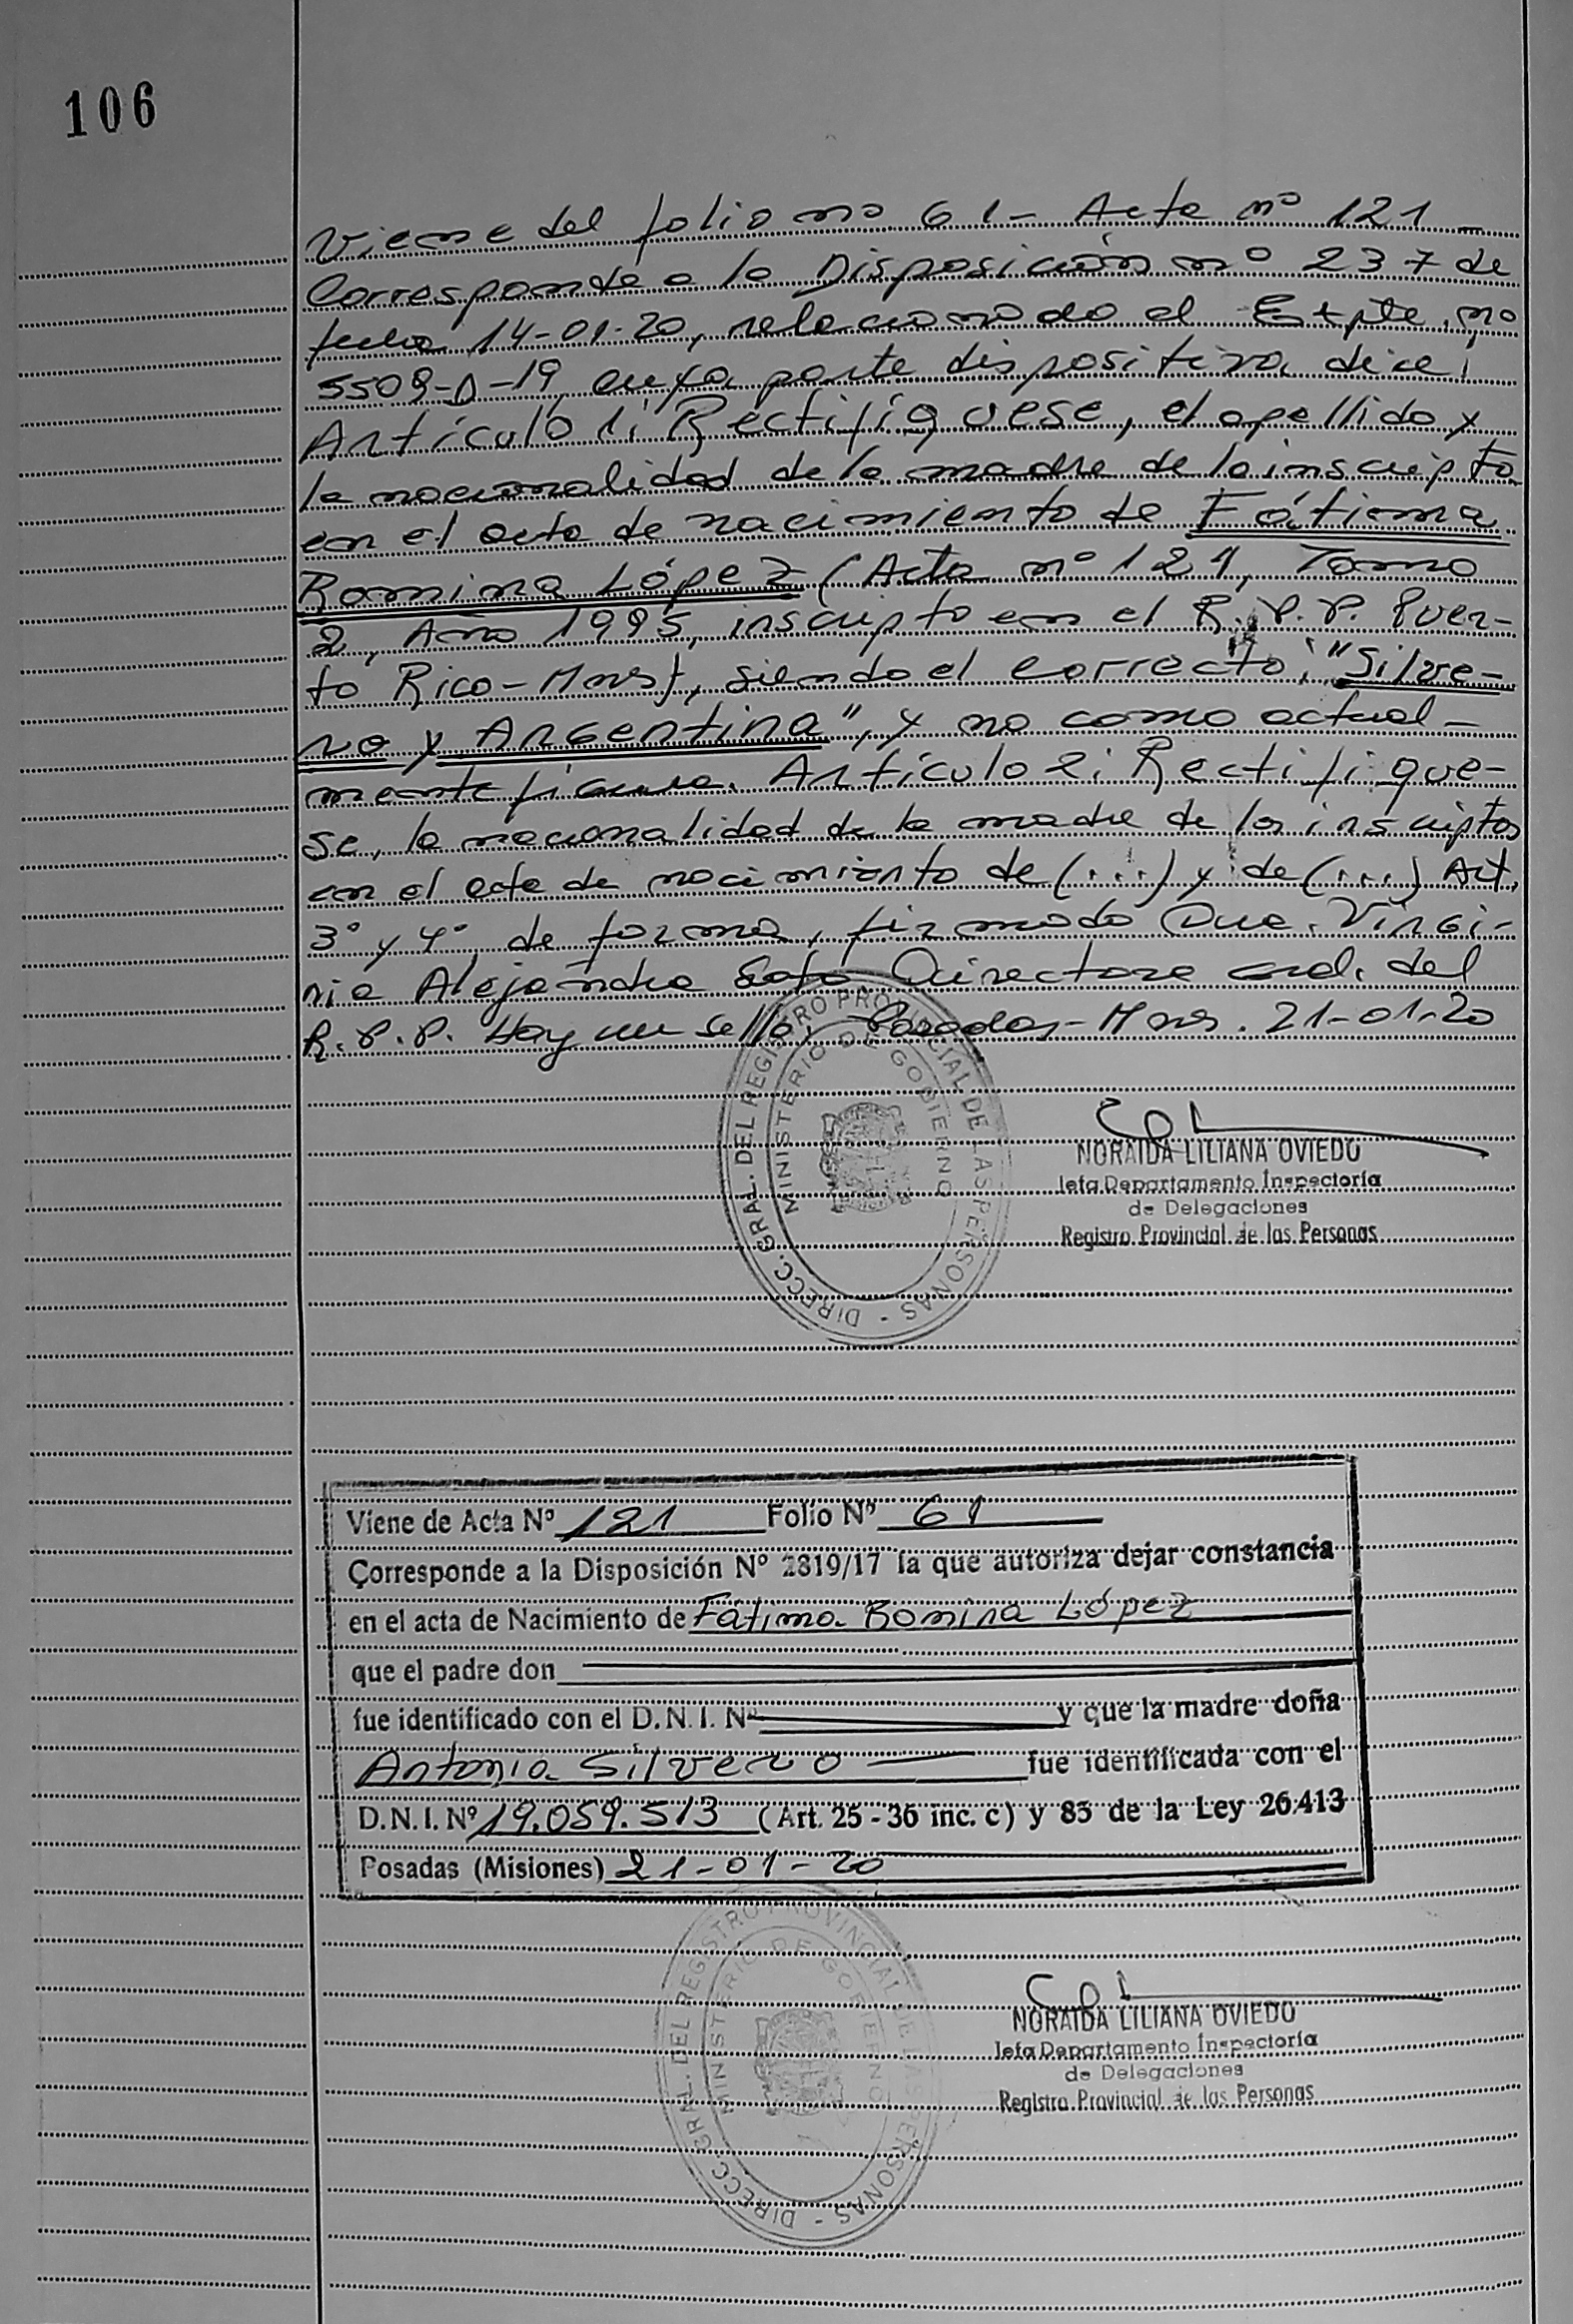 106
Viene del folio nº 61- Acta nº 121 -
Corresponde a la Disposición nº 237 de
fecha 14-01-20, relacionado al Expte. nº
5509-D-19, cuya parte dispositiva dice:
Artículo 1: Rectifíquese, el apellido y
la nacionalidad de la madre de la inscripta
en el acta de nacimiento de Fátima
Romina López (Acta nº 121, Tomo
2, Año 1995, inscripto en el R.P.P. Puer-
to Rico-Mnes), siendo el correcto: "Silve-
ro y Argentina", y no como actual-
mente figura. Artículo 2: Rectifíque-
se, la nacionalidad de la madre de los inscriptos
en el acta de nacimiento de (...) y de (...) Art.
3º y 4º de forma, firmado Dra. Virgi-
nia Alejandra Soto Directora Gral. del
R.P.P. Hay un sello, Posadas-Mnes. 21-01-20
DIRECC. GRAL. DEL REGISTRO PROVINCIAL DE LAS PERSONAS -
MINISTERIO DE GOBIERNO
NORAIDA LILIANA OVIEDO
Jefa Departamento Inspectoría
de Delegaciones
Registro Provincial de las Personas
Viene de Acta Nº 121 Folio Nº 61
Corresponde a la Disposición Nº 2819/17 la que autoriza dejar constancia
en el acta de Nacimiento de Fátima Romina López
que el padre don
fue identificado con el D.N.I. Nº y que la madre doña
Antonia Silvero fue identificada con el
D.N.I. Nº 19.059.513 (Art. 25 - 36 inc. c) y 85 de la Ley 26.413
Posadas (Misiones) 21-01-20
DIRECC. GRAL. DEL REGISTRO PROVINCIAL DE LAS PERSONAS -
MINISTERIO DE GOBIERNO
NORAIDA LILIANA OVIEDO
Jefa Departamento Inspectoría
de Delegaciones
Registro Provincial de las Personas